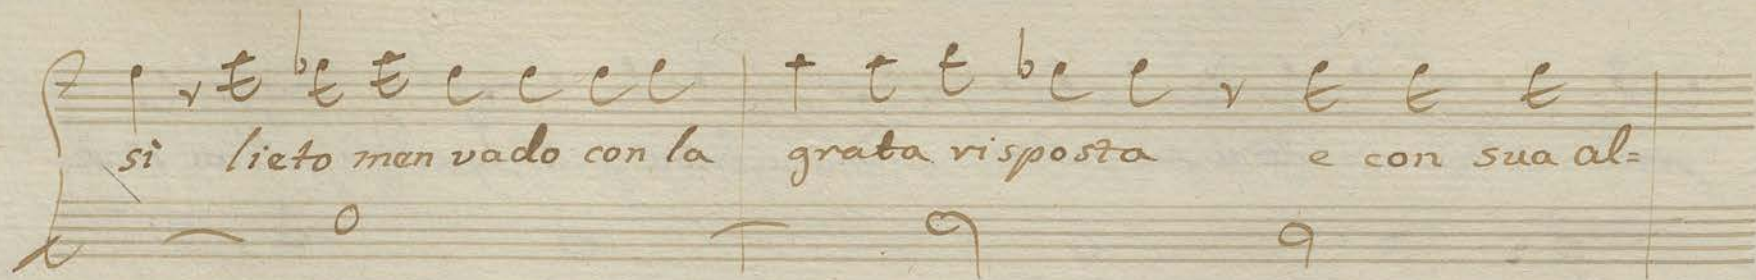 sì lieto men vado con la grata risposta e con sua al=